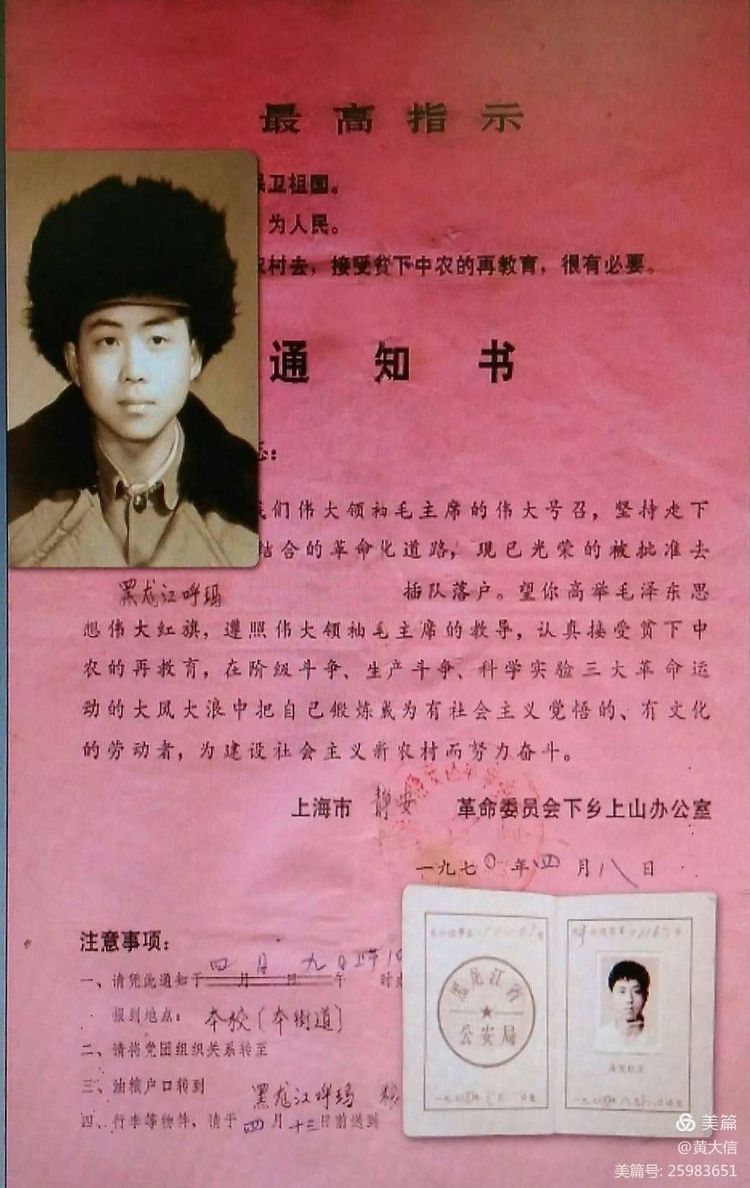 最高指示
卫祖国。
为人民。
村去，接受贫下中农的再教育，很有必要。
通知书
们伟大领袖毛主席的伟大号召，坚持走下
结合的革命化道路，现已光荣的被批准去
黑龙江呼玛 插队落户。望你高举毛泽东思
想伟大红旗，遵照伟大领袖毛主席的教导，认真接受贫下中
农的再教育，在阶级斗争、生产斗争、科学实验三大革命运
动的大风大浪中把自己锻炼成为有社会主义觉悟的、有文化
的劳动者，为建设社会主义新农村而努力奋斗。
上海市 静安 革命委员会下乡上山办公室
一九七〇年四月八日
注意事项：
四月九日上午10
一、请凭此通知于 月 日 午 时
报到地点：本校（本街道）
二、请将党团组织关系转至
三、油粮户口转到 黑龙江呼玛
四、行李等物件，请于四月十三日前送到
黑龙江省
公安局
美篇
@黄大信
美篇号: 25983651